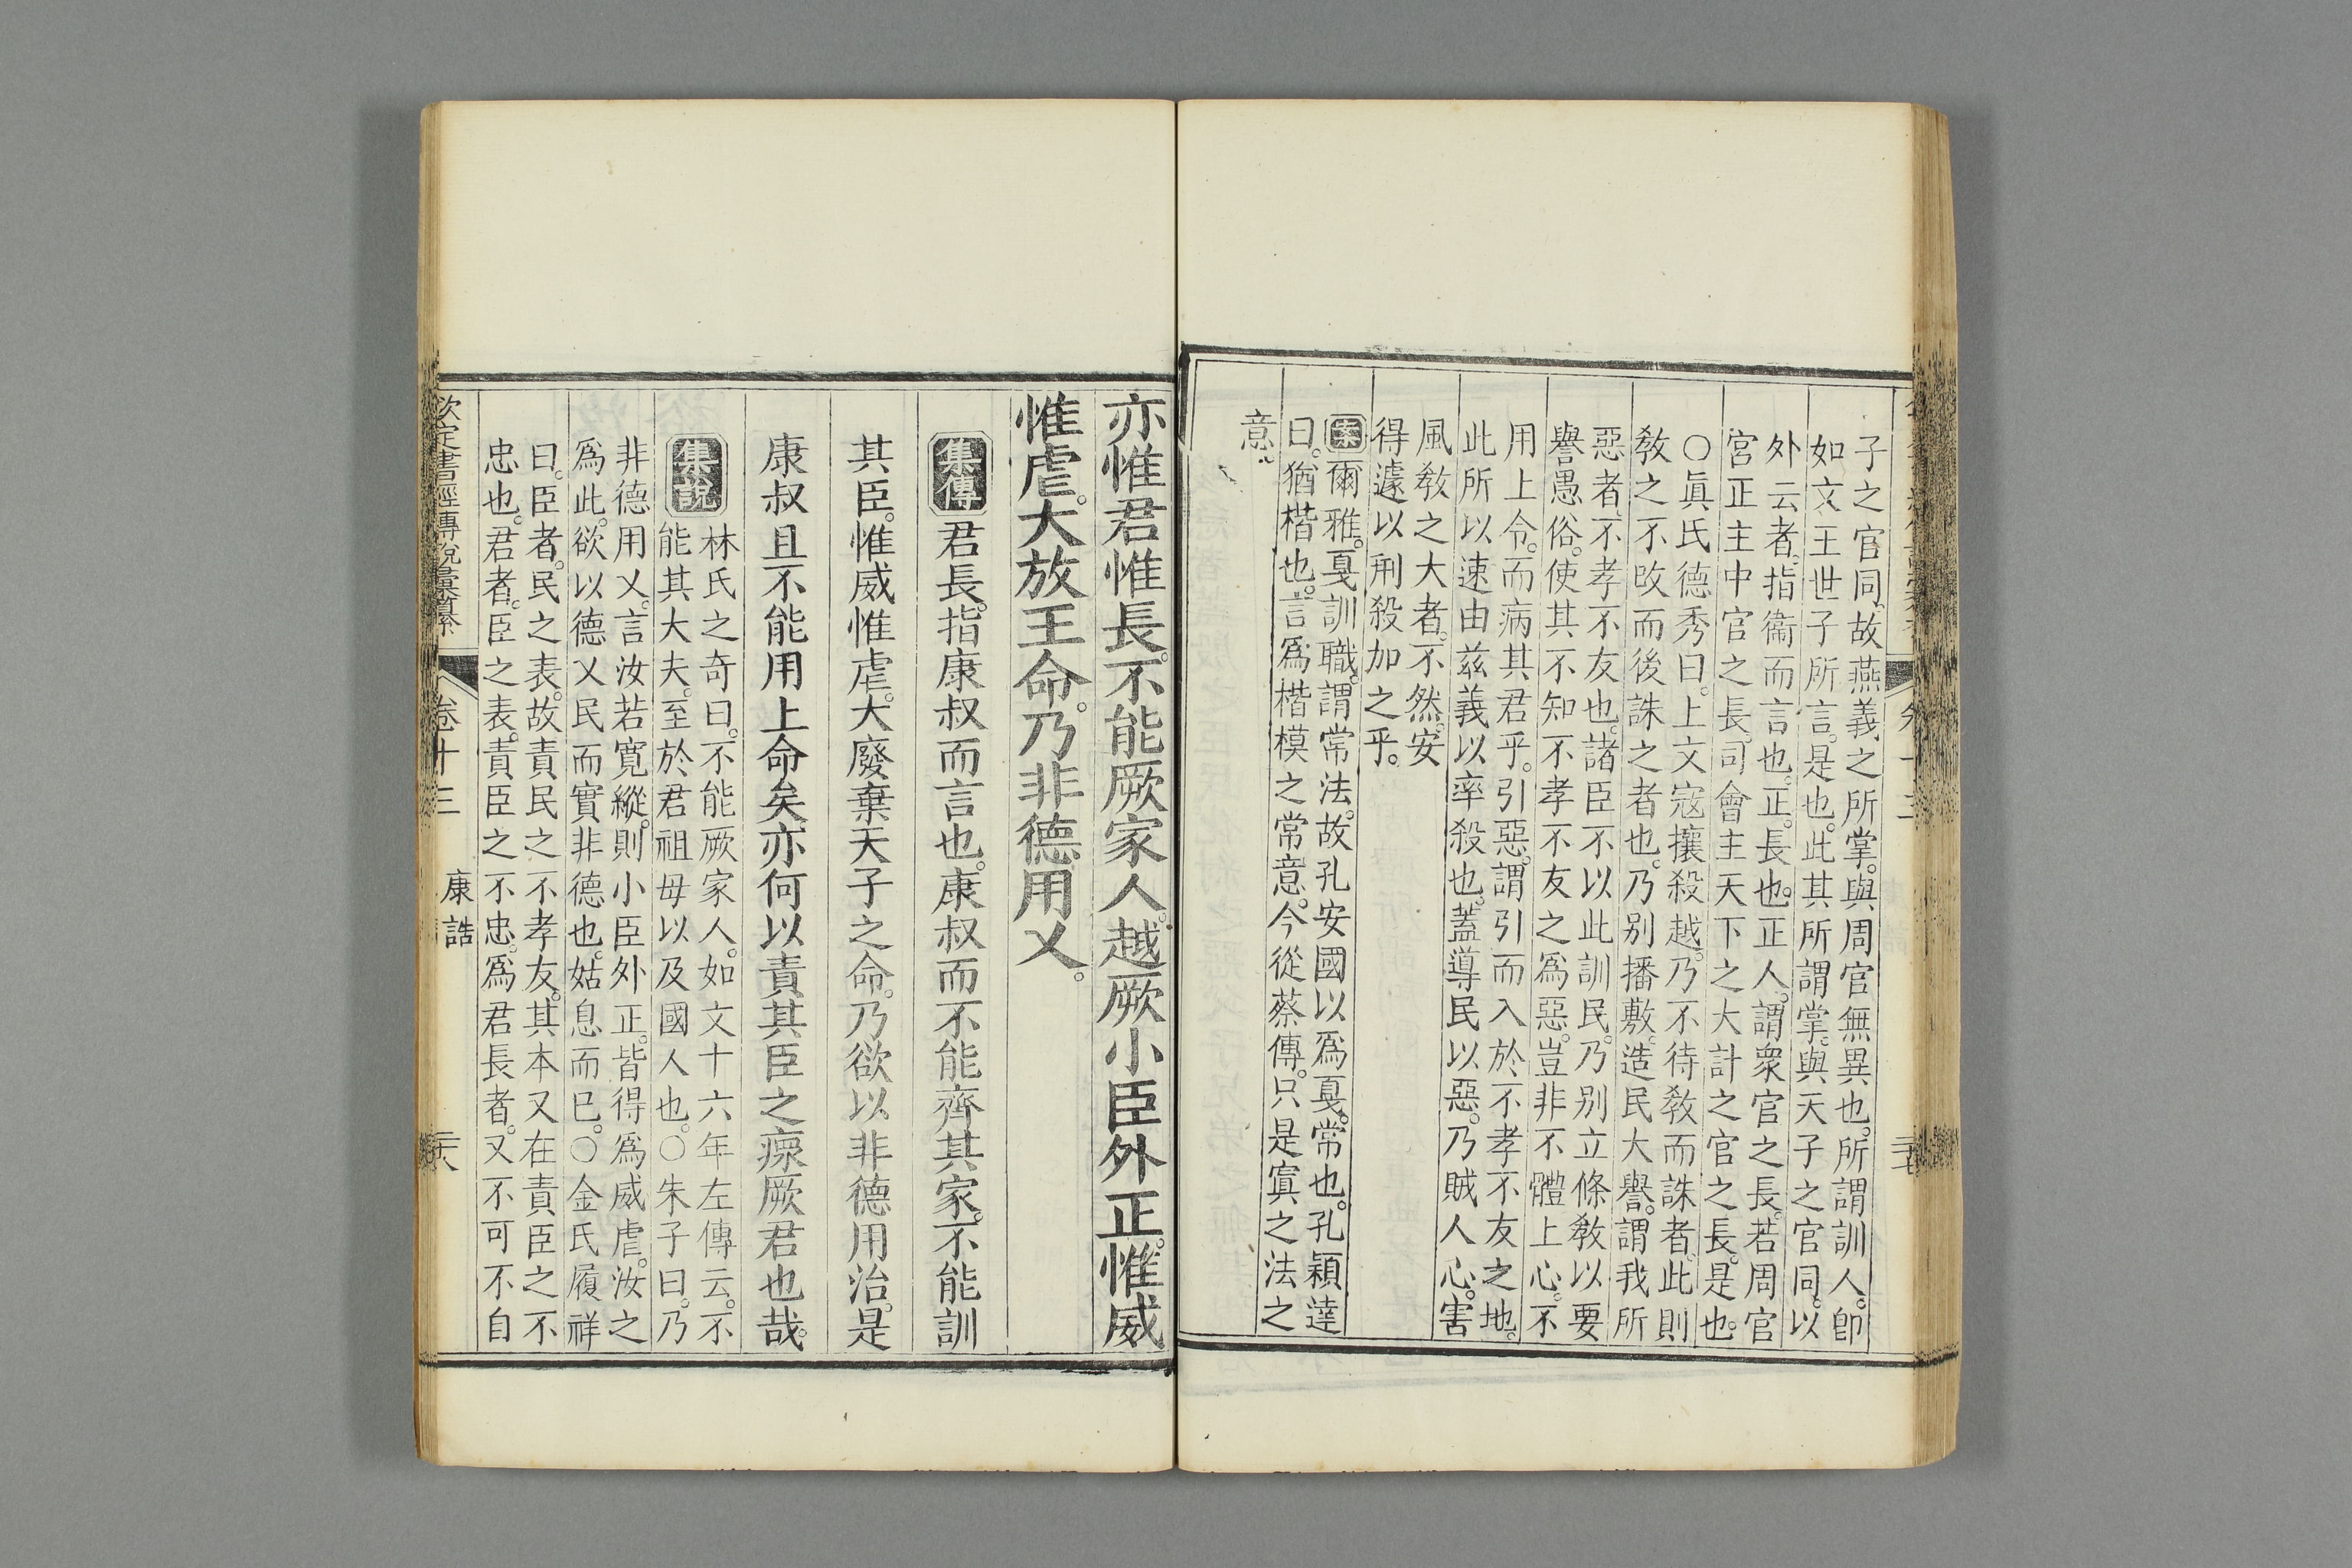 子之官同。故燕義之所掌。與周官無異也。所謂訓人。卽
如文王世子所言。是也。此其所謂掌。與天子之官同。以
外云者。指衞而言也。正。長也。正人。謂衆官之長。若周官
宮正主中官之長。司會主天下之大計之官之長。是也。
〇眞氏德秀曰。上文寇攘殺越。乃不待敎而誅者。此則
敎之不改而後誅之者也。乃别播敷。造民大譽。謂我所
惡者。不孝不友也。諸臣不以此訓民。乃别立條敎以要
譽愚俗。使其不知不孝不友之爲惡。豈非不體上心。不
用上令。而病其君乎。引惡。謂引而入於不孝不友之地。
此所以速由兹義以率殺也。蓋導民以惡。乃賊人心。害
風敎之大者。不然。安
得遽以刑殺加之乎。
案爾雅。戛訓職。謂常法。故孔安國以爲戛。常也。孔穎達
曰。猶楷也。言爲楷模之常意。今從蔡傳。只是寘之法之
意。
亦惟君惟長。不能厥家人。越厥小臣外正。惟威
惟虐。大放王命。乃非德用乂。
集傳君長。指康叔而言也。康叔而不能齊其家。不能訓
其臣。惟威惟虐。大廢棄天子之命。乃欲以非德用治。是
康叔且不能用上命矣。亦何以責其臣之瘝厥君也哉。
集說林氏之奇曰。不能厥家人。如文十六年左傳云。不
能其大夫。至於君祖母以及國人也。〇朱子曰。乃
非德用乂。言汝若寬縱。則小臣外正。皆得爲威虐。汝之
爲此。欲以德乂民而實非德也。姑息而已。〇金氏履祥
曰。臣者。民之表。故責民之不孝友。其本又在責臣之不
忠也。君者。臣之表。責臣之不忠。爲君長者。又不可不自
欽定書經傳說彙纂 卷十三 康誥 二十八